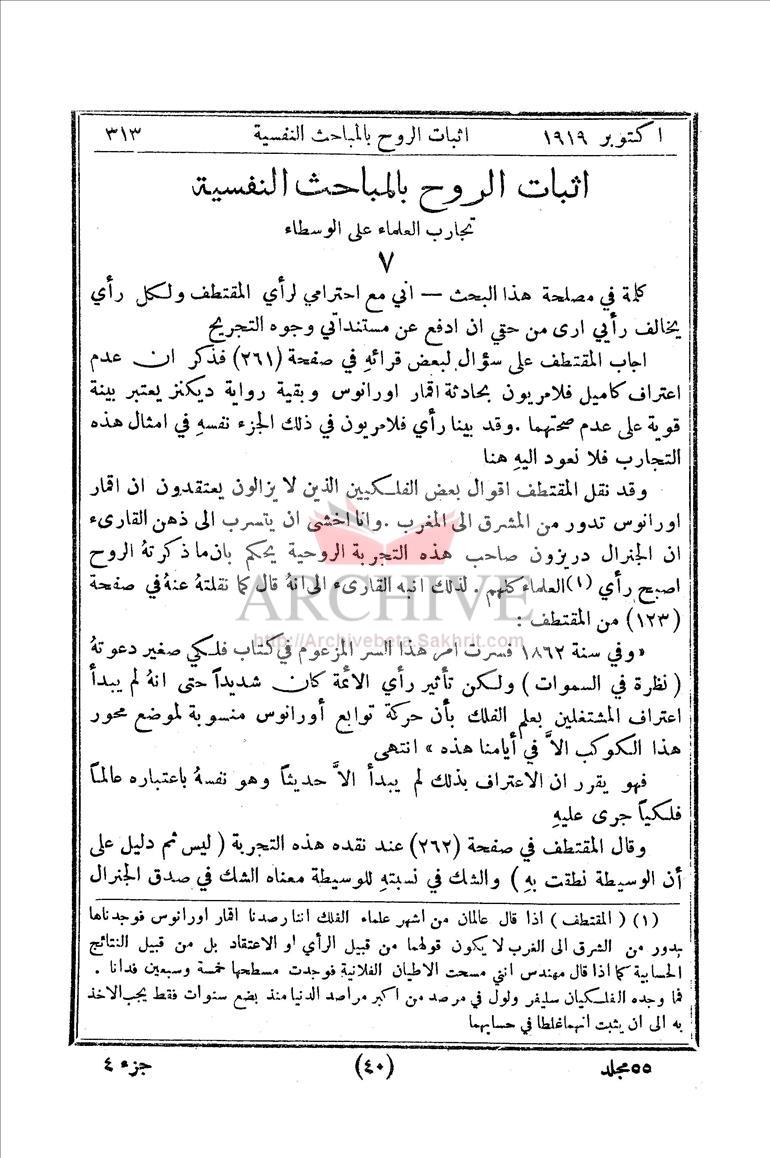 ١ كتوبر ١٩١٩ اثبات الروح بالمباحث النفسية ٣١٣
اثبات الروح بالمباحث النفسية
تجارب العلماء على الوسطاء
٧
كلمة في مصلحة هذا البحث — اني مع احترامي لرأي المقتطف ولكل رأي
يخالف رأيي ارى من حقي ان ادفع عن مستنداتي وجوه التجريح
اجاب المقتطف على سؤال لبعض قرائه في صفحة (٢٦١) فذكر ان عدم
اعتراف كاميل فلامريون بحادثة اقمار اورانوس وبقية رواية ديكنز يعتبر بينة
قوية على عدم صحتهما . وقد بينا رأي فلامريون في ذلك الجزء نفسهِ في امثال هذه
التجارب فلا نعود اليهِ هنا
وقد نقل المقتطف اقوال بعض الفلكيين الذين لا يزالون يعتقدون ان اقمار
اورانوس تدور من المشرق الى المغرب . وانا اخشى ان يتسرب الى ذهن القارىء
ان الجنرال دريزون صاحب هذه التجربة الروحية يحكم بان ما ذكرتهُ الروح
اصبح رأي (١) العلماء كلهم . لذلك انبه القارىء الى انهُ قال كما نقلتهُ عنهُ في صفحة
(١٢٣) من المقتطف :
«وفي سنة ١٨٦٢ فسرت امر هذا السر المزعوم في كتاب فلكي صغير دعوتهُ
( نظرة في السموات ) ولكن تأثير رأي الأئمة كان شديداً حتى انهُ لم يبدأ
اعتراف المشتغلين بعلم الفلك بأن حركة توابع أورانوس منسوبة لموضع محور
هذا الكوكب الاَّ في أيامنا هذه » انتهى
فهو يقرر ان الاعتراف بذلك لم يبدأ الاَّ حديثاً وهو نفسهُ باعتباره عالماً
فلكياً جرى عليهِ
وقال المقتطف في صفحة (٢٦٢) عند نقده هذه التجربة ( ليس ثم دليل على
أن الوسيطة نطقت بهِ ) والشك في نسبتهِ للوسيطة معناه الشك في صدق الجنرال
(١) ( المقتطف ) اذا قال عالمان من اشهر علماء الفلك اننا رصدنا اقمار اورانوس فوجدناها
بدور من الشرق الى الغرب لا يكون قولهما من قبيل الرأي او الاعتقاد بل من قبيل النتائج
الحسابية كما اذا قال مهندس انني مسحت الاطيان الفلانية فوجدت مسطحها خمسة وسبعين فدانا .
فما وجده الفلكيان سليفر ولول في مرصد من اكبر مراصد الدنيا منذ بضع سنوات فقط يجب الاخذ
به الى ان يثبت أنهما غلطا في حسابهما
٥٥ مجلد (٤٠) جزء ٤
ARCHIVE
http://Archivebeta.Sakhrit.com